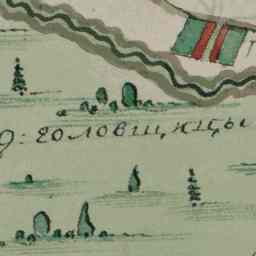 д: головщицы